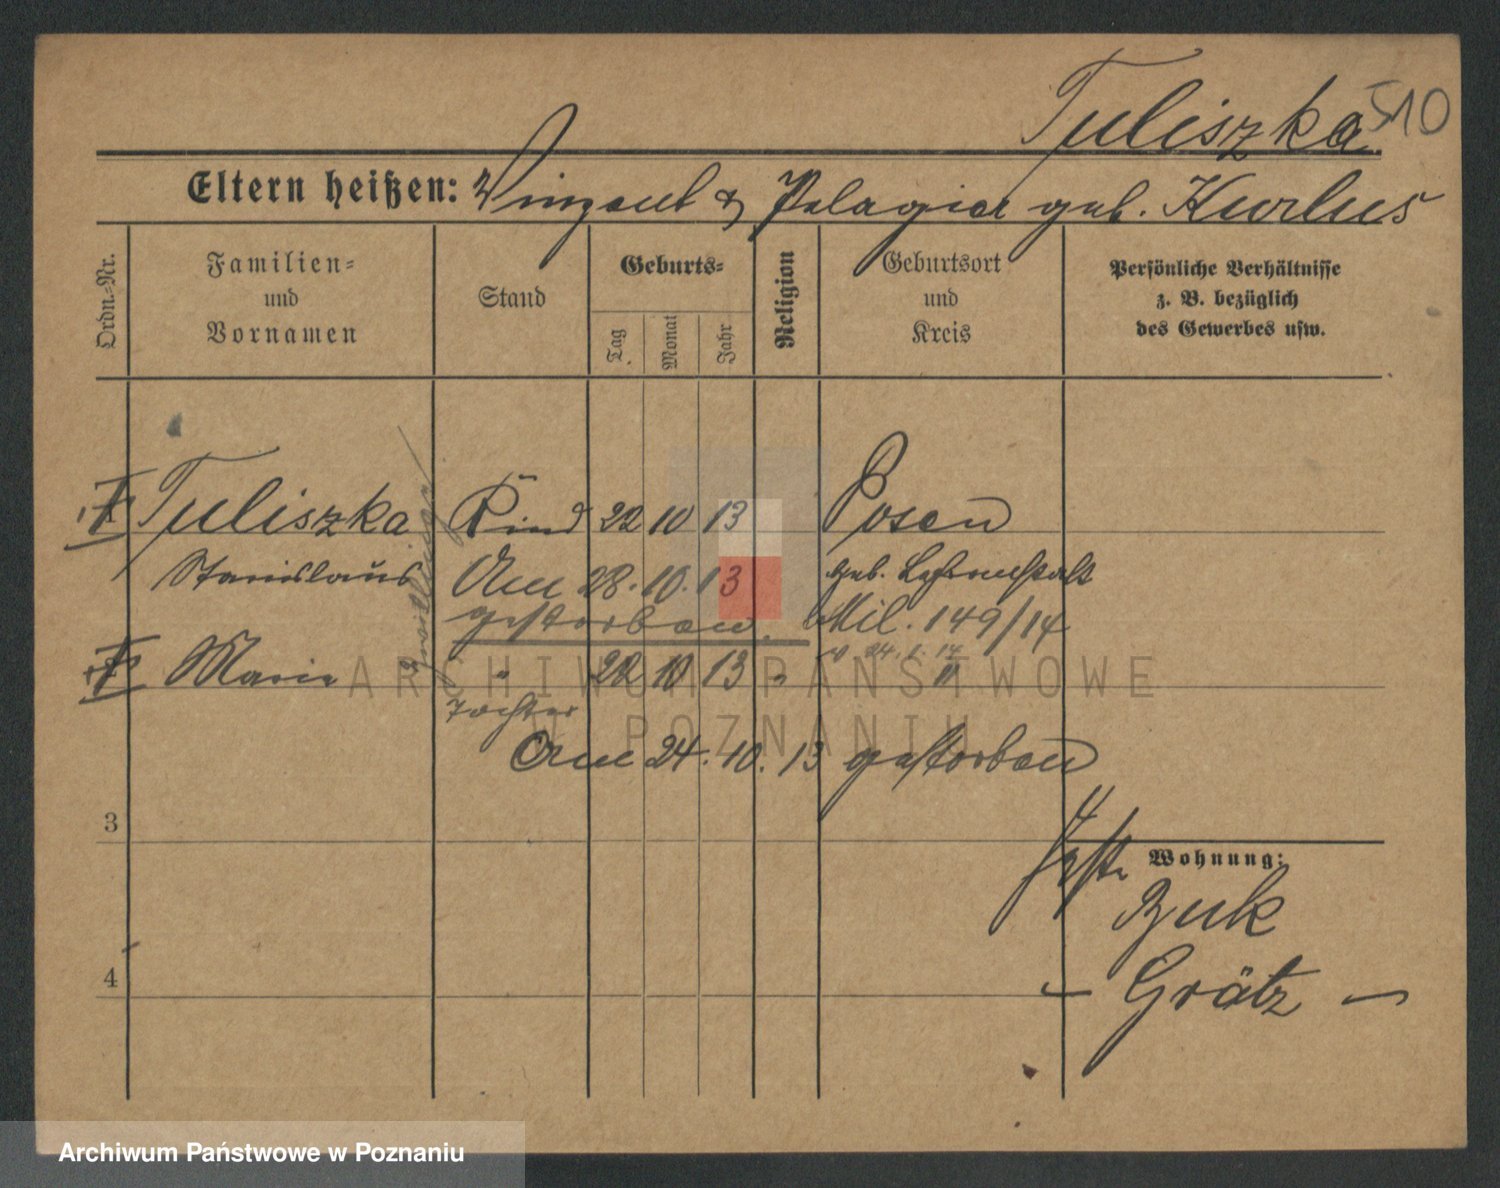 Tuliszka
510
Eltern heißen: Vinzent & Pelagia geb. Kurlus
Ordn.=Nr.
Familien=
und
Vornamen
Stand
Geburts=
Tag
Monat
Jahr
Religion
Geburtsort
und
Kreis
Persönliche Verhältnisse
z. B. bezüglich
des Gewerbes usw.
Tuliszka Kind 22 10 13 Posen
Stanislaus Am 28. 10. 13 Geb.
gestorben. Mil. 149/14
24. 1. 14
Zwillinge
Marie " 22 10 13 " "
Tochter
Am 24. 10. 13 gestorben
3
Wohnung:
Buk
4
– Grätz –
ARCHIWUM PAŃSTWOWE
W POZNANIU
Archiwum Państwowe w Poznaniu